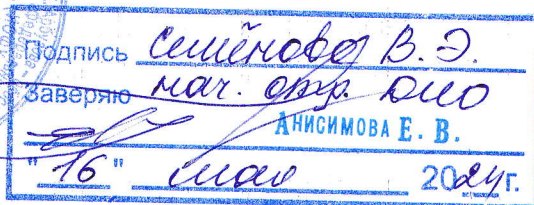 Подпись Семёнова В. Э.
Заверяю нач. отд. ОИО
Анисимова Е. В.
"16" мая 2024 г.